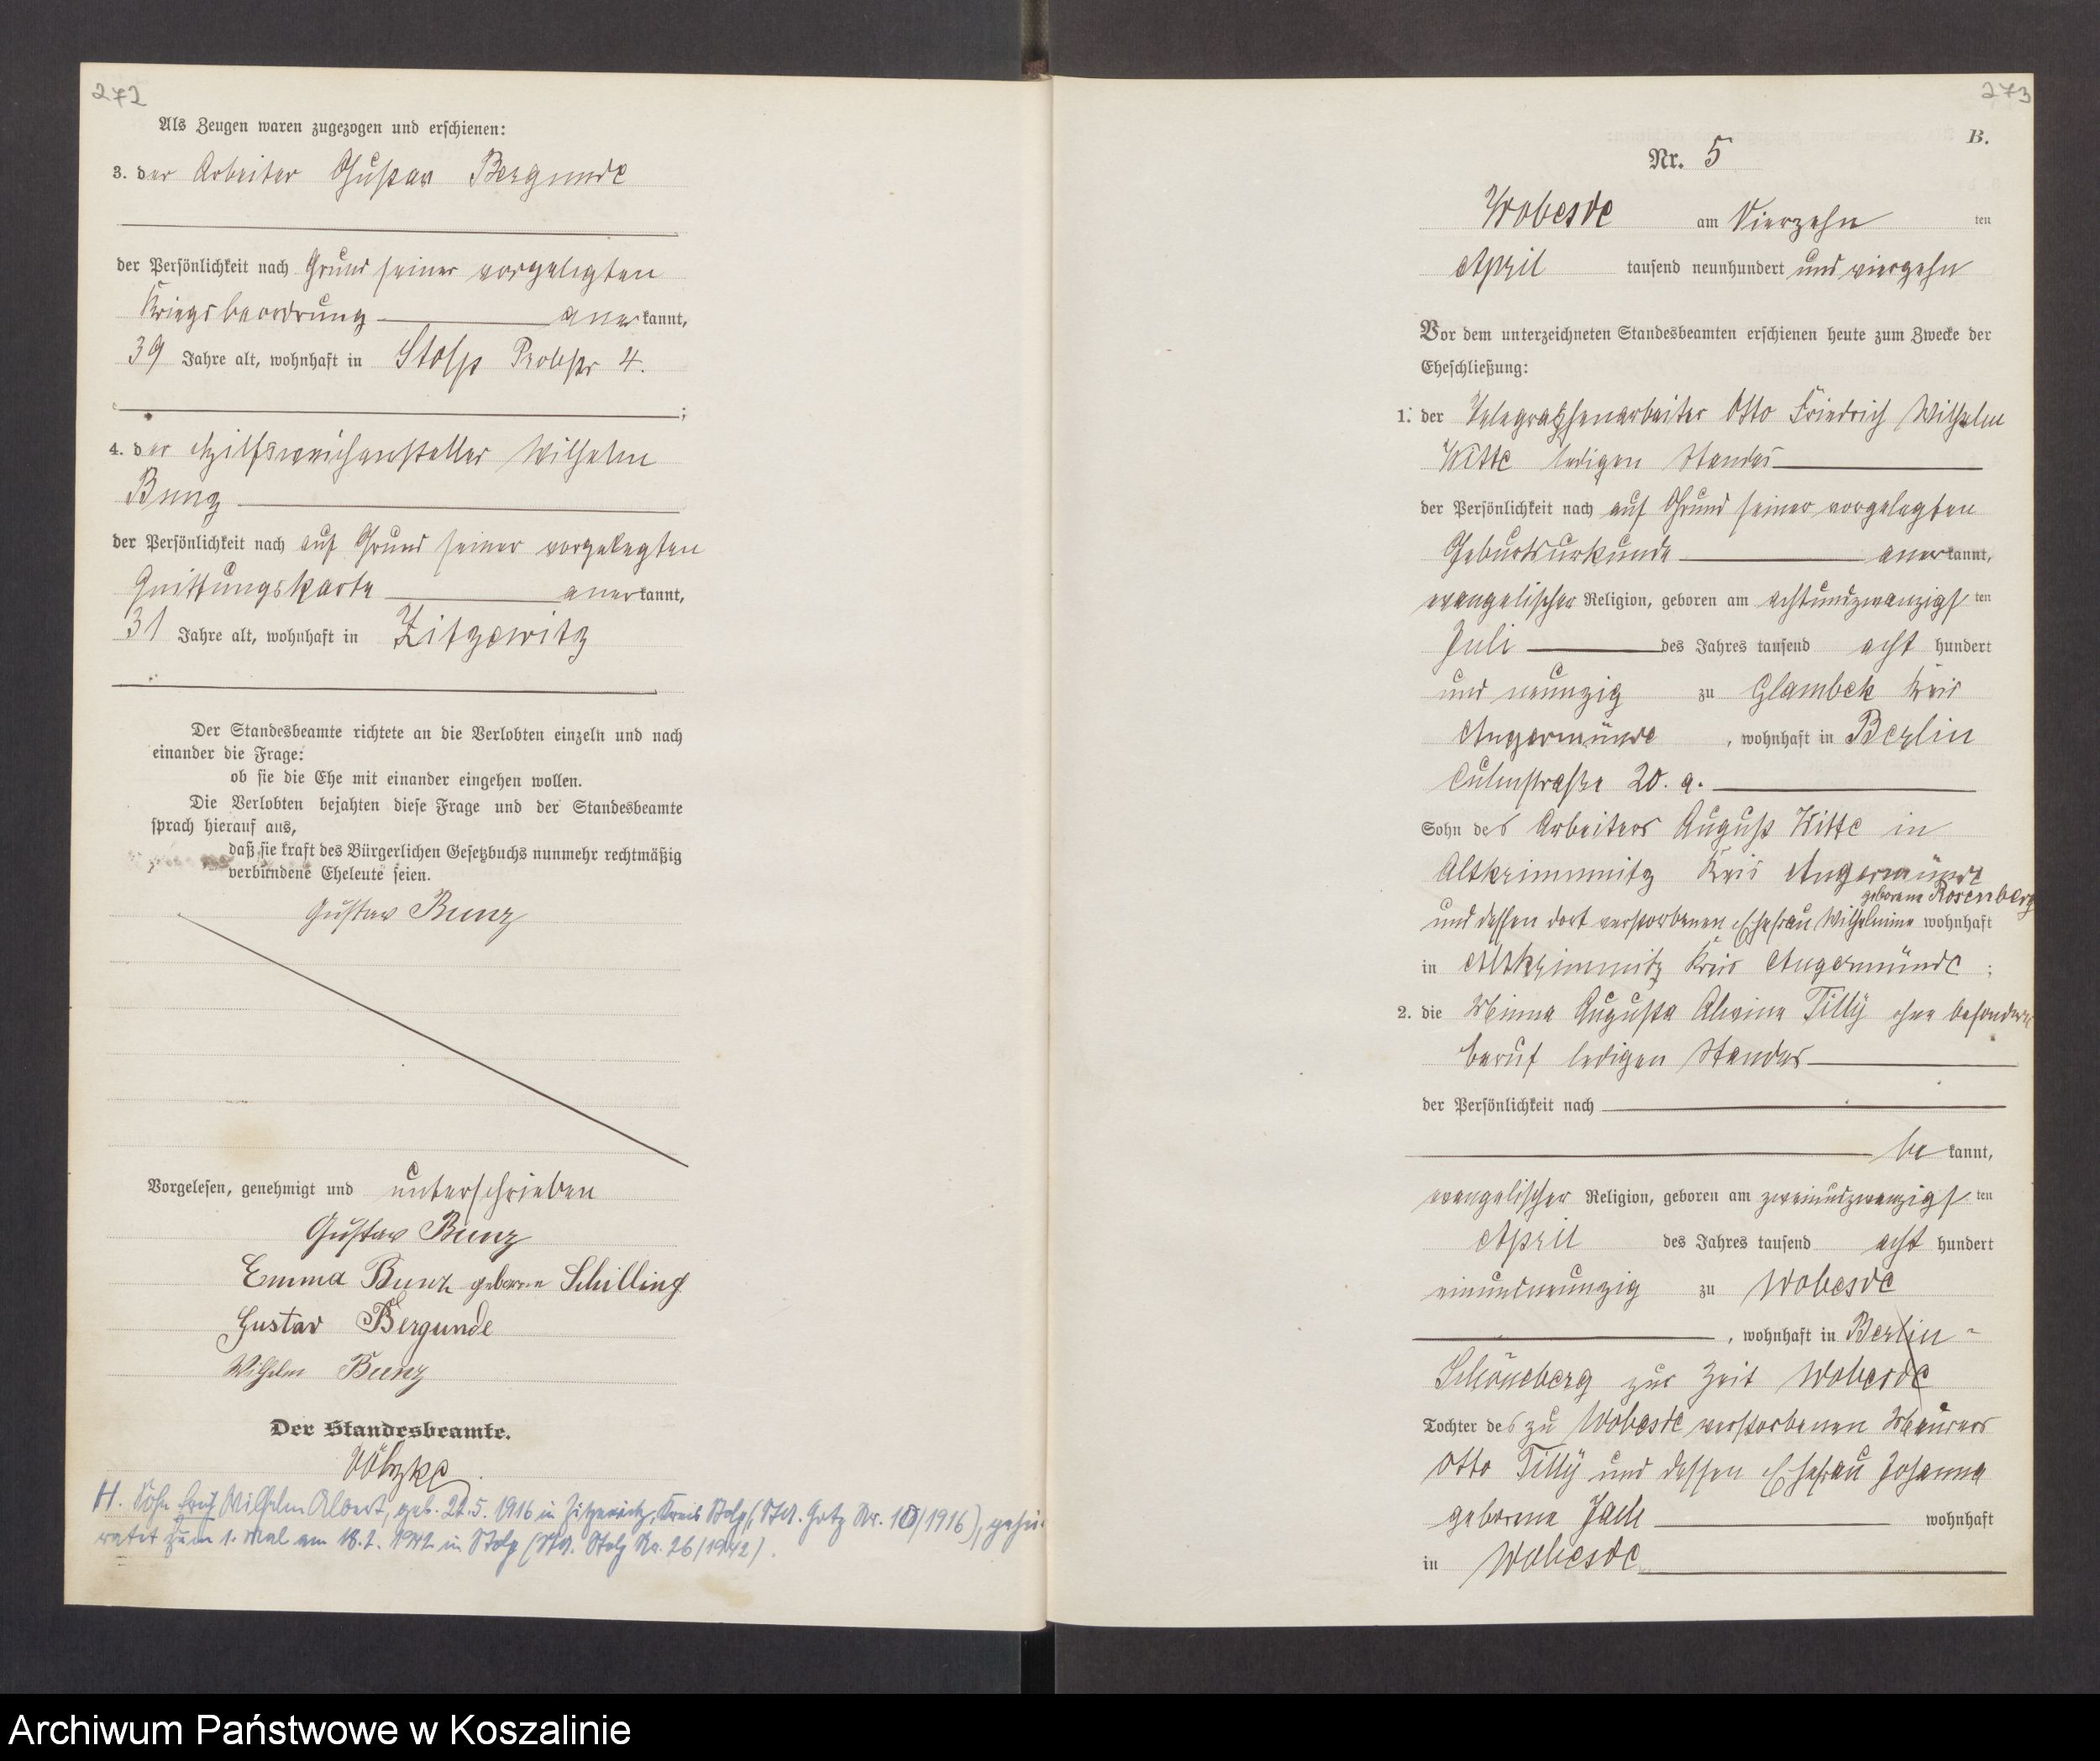 272
Als Zeugen waren zugezogen und erschienen:
3. der Arbeiter Gustav Bergunde
der Persönlichkeit nach Grund seiner vorgelegten
Kriegsbeordrung anerkannt,
39 Jahre alt, wohnhaft in Stolp Probstr 4.
;
4. der Hilfsweichensteller Wilhelm
Bunz
der Persönlichkeit nach auf Grund seiner vorgelegten
Quittungskarte anerkannt,
31 Jahre alt, wohnhaft in Zitzewitz
Der Standesbeamte richtete an die Verlobten einzeln und nach
einander die Frage:
ob sie die Ehe mit einander eingehen wollen.
Die Verlobten bejahten diese Frage und der Standesbeamte
sprach hierauf aus,
daß sie kraft des Bürgerlichen Gesetzbuchs nunmehr rechtmäßig
verbundene Eheleute seien.
Gustav Bunz
Vorgelesen, genehmigt und unterschrieben
Gustav Bunz
Emma Bunz geborene Schilling
Gustav Bergunde
Wilhelm Bunz
Der Standesbeamte.
H. Sohn Wilhelm Albert, geb. 22.5.1916 in Zitzewitz, Kreis Stolp, (StA. Nr. 10/1916), gehei-
ratet zum 1. Mal am in Stolp (StA. Stolp Nr. 26/1942).
273
B.
Nr. 5
Wobesde am Vierzehn ten
April tausend neunhundert und vierzehn
Vor dem unterzeichneten Standesbeamten erschienen heute zum Zwecke der
Eheschließung:
1. der Telegraphenarbeiter Otto Friedrich Wilhelm
Witte ledigen Standes
der Persönlichkeit nach auf Grund seiner vorgelegten
Geburtsurkunde anerkannt,
evangelischer Religion, geboren am achtundzwanzigsten
Juli des Jahres tausend acht hundert
und neunzig zu Glambek Kreis
Angermünde, wohnhaft in Berlin
Culmstraße 20. a.
Sohn des Arbeiters August Witte in
Kreis Angermünde
geborene Rosenberg
und dessen dort verstorbenen Ehefrau Wilhelmine wohnhaft
in Kreis Angermünde;
2. die Minna Augusta Alwine Tilly ohne besondern
beruf ledigen Standes
der Persönlichkeit nach
bekannt,
evangelischer Religion, geboren am zweiundzwanzigsten
April des Jahres tausend acht hundert
einundneunzig zu Wobesde
, wohnhaft in Berlin-
Schöneberg zur Zeit Wobesde
Tochter des zu Wobesde verstorbenen Maurers
Otto Tilly und dessen Ehefrau Johanna
geborene wohnhaft
in Wobesde
Archiwum Państwowe w Koszalinie